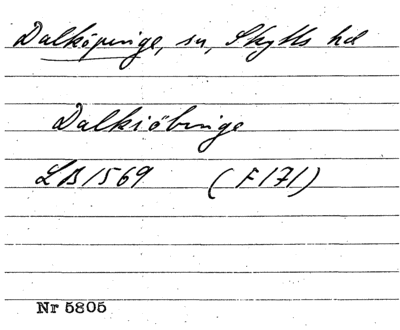 Dalköpinge, sn, Skytts hd
Dalkiöbinge
LB 1569 (F171)
Nr 5805